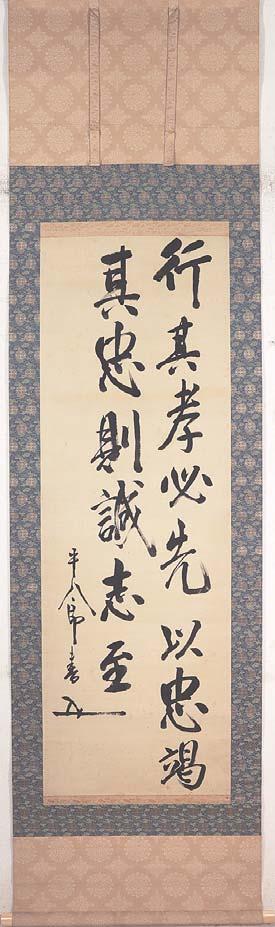 行其孝必先以忠竭
其忠則誠志至
半八郎書